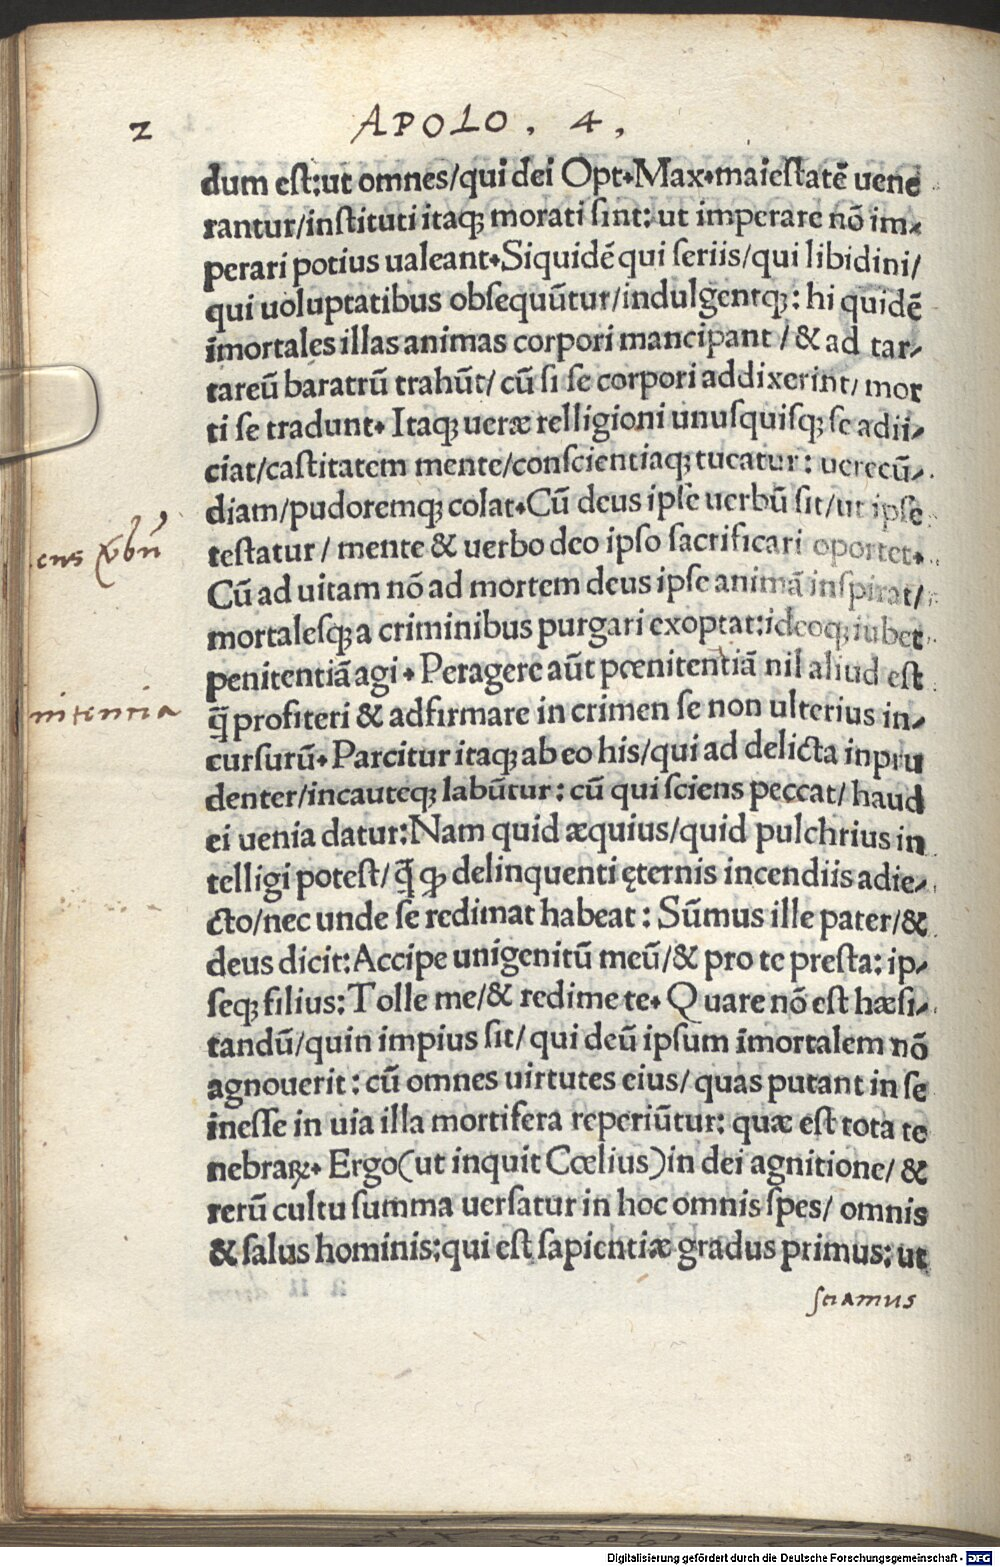 2
APOLO. 4.
dum est:ut omnes/qui dei Opt.Max.maiestatẽ uene
rantur/instituti itaqꝫ morati sint:ut imperare nõ im-
perari potius ualeant.Siquidẽ qui seriis/qui libidini/
qui uoluptatibus obsequũtur/indulgentqꝫ: hi quidẽ
ĩmortales illas animas corpori mancipant/& ad tar-
tareũ baratrũ trahũt/ cũ si se corpori addixerint/ mor
ti se tradunt. Itaqꝫ ueræ relligioni unusquisqꝫ se adii-
ciat/castitatem mente/conscientiaqꝫ tueatur: uerecũ-
diam/pudoremqꝫ colat.Cũ deus ipse uerbũ sit/ut ipse
ens v̄bũ
testatur/ mente & uerbo deo ipso sacrificari oportet.
Cũ ad uitam nõ ad mortem deus ipse animã inspirat/
mortalesqꝫ a criminibus purgari exoptat:ideoqꝫ iubet
penitentiã agi. Peragere aũt pœnitentiã nil aliud est
nitencia
q̃ profiteri & adfirmare in crimen se non ulterius in-
cursurũ. Parcitur itaqꝫ ab eo his/qui ad delicta inpru
denter/incauteqꝫ labũtur: cũ qui sciens peccat/ haud
ei uenia datur:Nam quid æquius/quid pulchrius in
telligi potest/ q̃ ꝙ delinquenti ęternis incendiis adie-
cto/nec unde se redimat habeat: Sũmus ille pater/&
deus dicit:Accipe unigenitũ meũ/& pro te presta: ip-
seqꝫ filius:Tolle me/& redime te. Quare nõ est hæsi-
tandũ/quin impius sit/ qui deũ ipsum ĩmortalem nõ
agnouerit: cũ omnes uirtutes eius/ quas putant in se
inesse in uia illa mortifera reperiũtur: quæ est tota te
nebraꝝ. Ergo(ut inquit Cœlius)in dei agnitione/ &
rerũ cultu summa uersatur in hoc omnis spes/ omnis
& salus hominis:qui est sapientiæ gradus primus: ut
sciamus
Digitalisierung gefördert durch die Deutsche Forschungsgemeinschaft - DFG